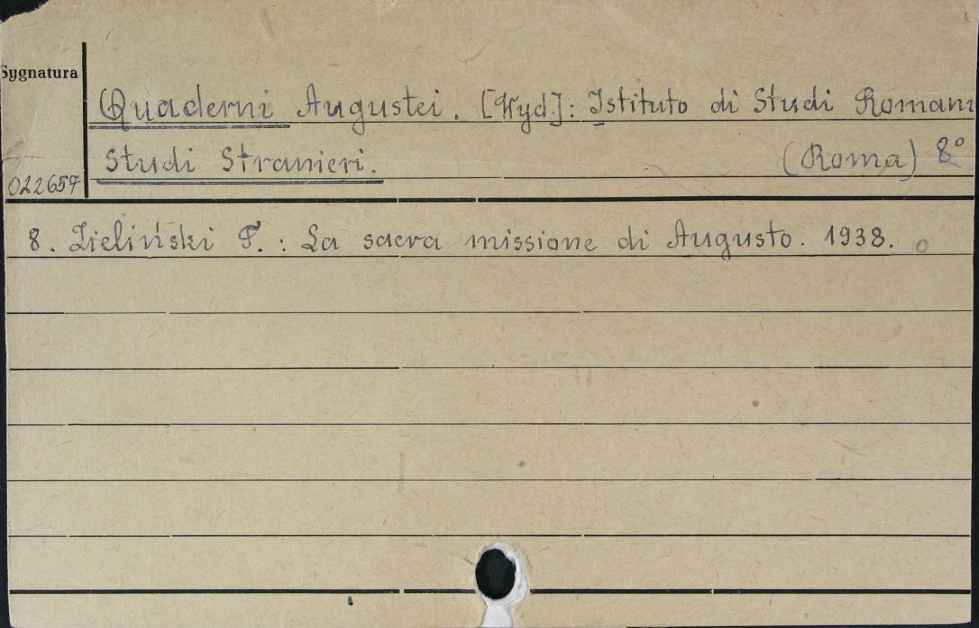 Sygnatura
Quaderni Augustei. [Wyd]: Istituto di Studi Romani
Studi Stranieri. (Roma) 8°
022657
8. Zieliński T.: La sacra missione di Augusto. 1938. o